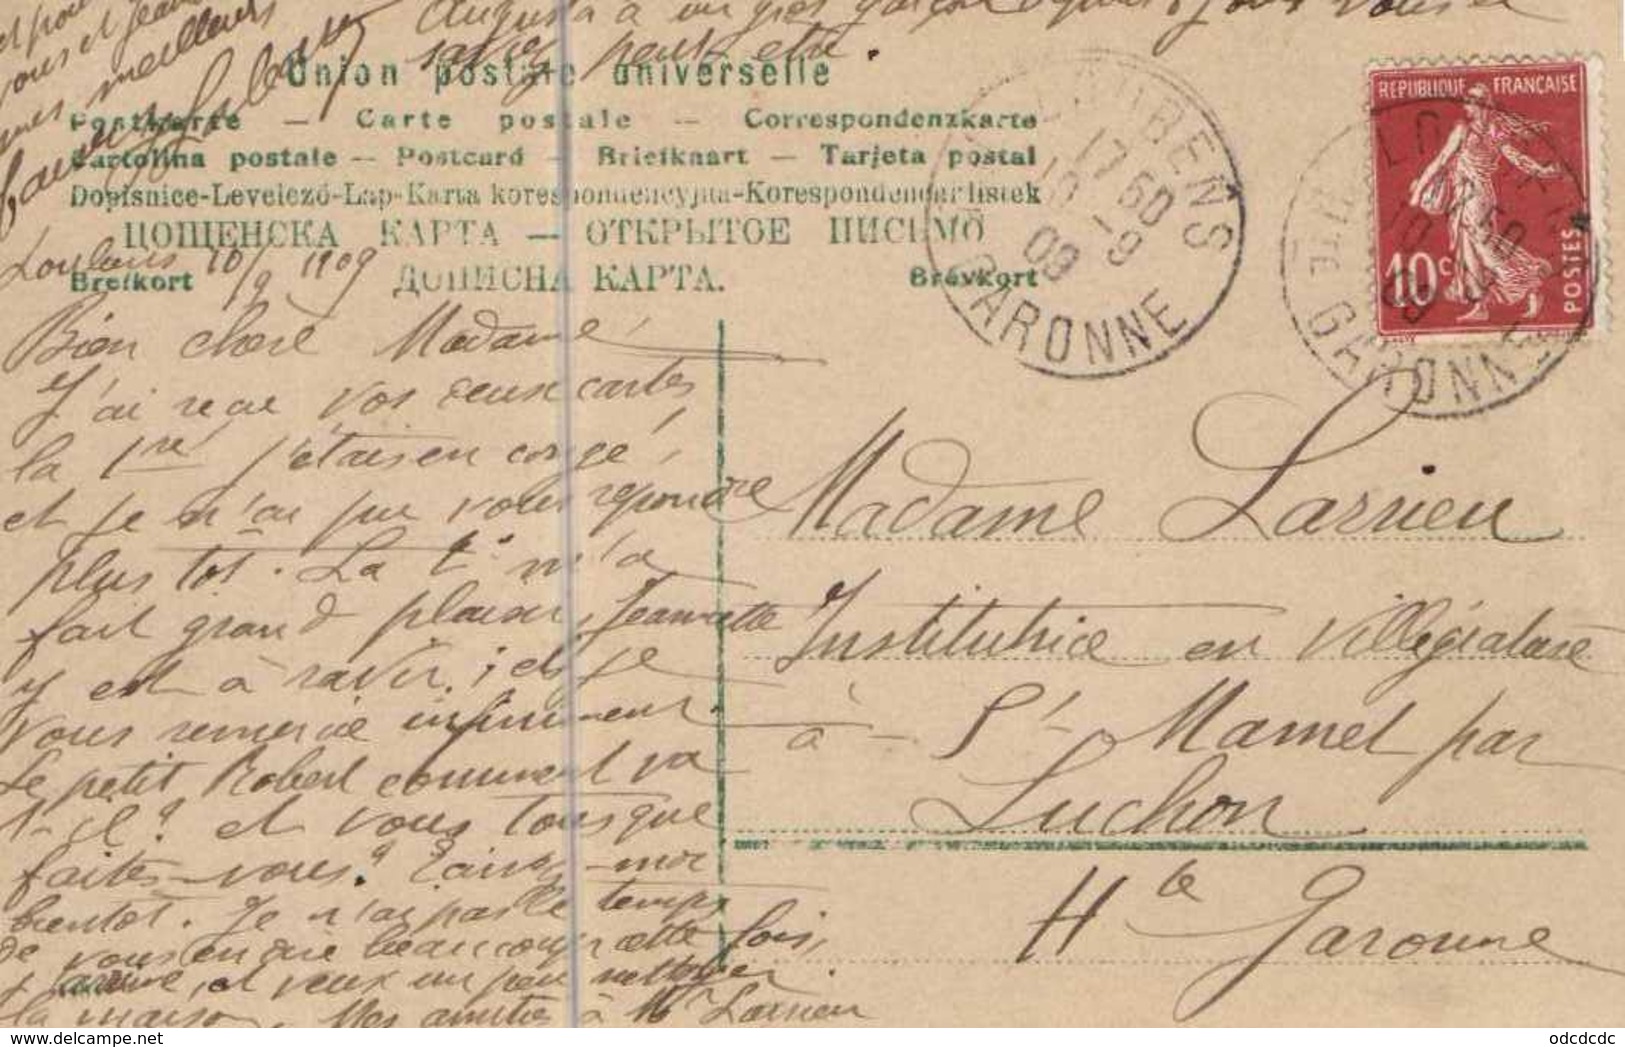 Augusta a un gros garçon
savez peut etre.
meilleurs
Union postale universelle
Postkarte — Carte postale — Correspondenzkarte
Cartolina postale — Postcard — Briefkaart — Tarjeta postal
Dopisnice-Levelező-Lap-Karta korespondencyjna-Korespondenční listek
ЦОЩЕНСКА КАРТА — ОТКРЫТОЕ ПИСЬМО
Brefkort ДОПИСНА КАРТА. Brevkort
Loubens 10/9 1909
Bien chère Madame
J'ai reçue vos deux cartes
la 1re j'étais en congé,
et je n'ai pu vous repondre
plus tot. La 2e m'a
fait grand plaisir, Jeannette
y est à ravir ; et je
vous remercie infiniment.
Le petit Robert comment va
t-il? et vous tous que
faites-vous? Ecrivez-moi
bientot. Je n'ai pas le temps
de vous en dire beaucoup cette fois,
et veux un peu nettoyer
la maison. Mes amitiés à Mr Larrieu
LOUBENS
17 50
10 - 9
09
GARONNE
REPUBLIQUE FRANÇAISE
10 c
POSTES
LOUBENS
Hte GARONNE
Madame Larrieu
Institutrice en villégiature
à St Mamet par
Luchon
Hte Garonne
odcdcdc